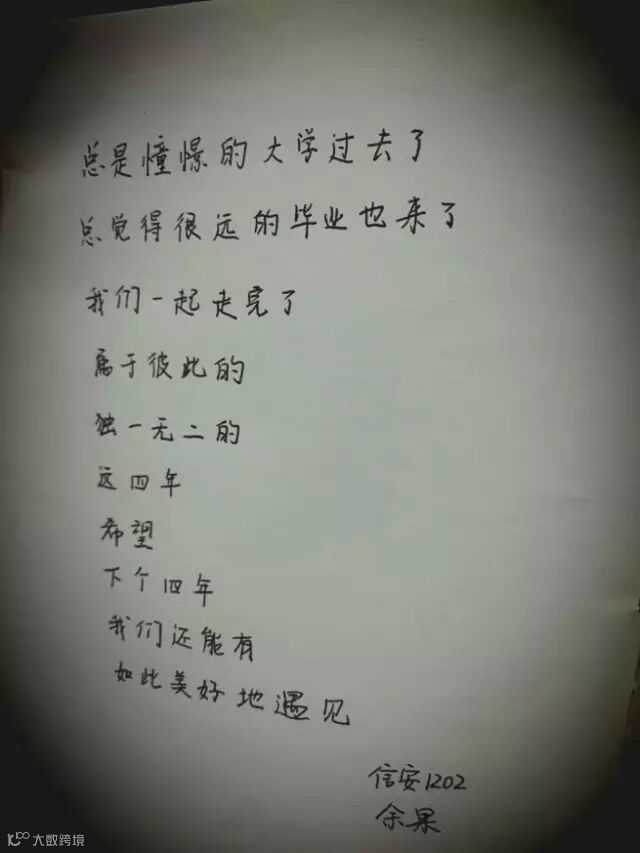 总是憧憬的大学过去了
总觉得很远的毕业也来了
我们一起走完了
属于彼此的
独一无二的
这四年
希望
下个四年
我们还能有
如此美好地遇见
信安1202
余果
大数跨境